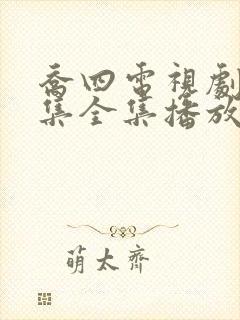 喬四電視劇
集全集播放
萌太齊